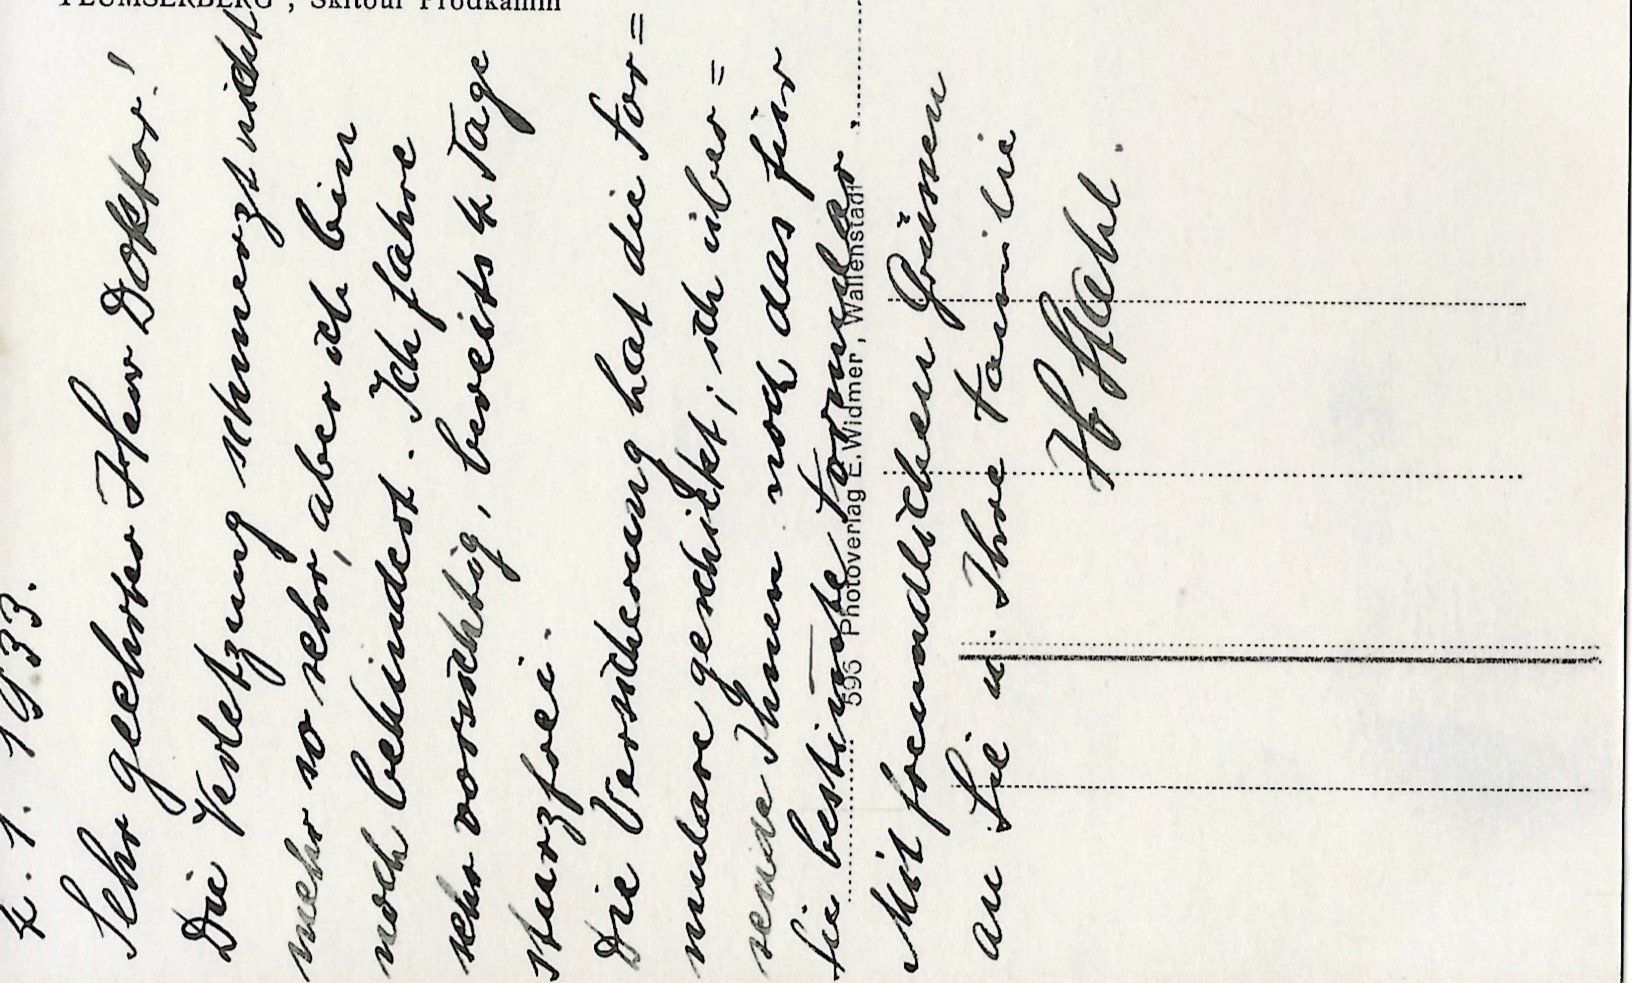 FLUMSERBERG, Skitour Prodkamm
4. 1. 1933.
Sehr geehrter Herr Doktor!
Die Verletzung schmerzt nicht
mehr so sehr, aber ich bin
noch behindert. Ich fahre
sehr vorsichtig, bereits 4 Tage
sturzfrei.
Die Versicherung hat die For=
mulare geschickt; ich über=
sende Ihnen noch das für
Sie bestimmte Formular.
Mit freundlichen Grüssen
an Sie u. Ihre Familie
596 Photoverlag E. Widmer, Wallenstadt